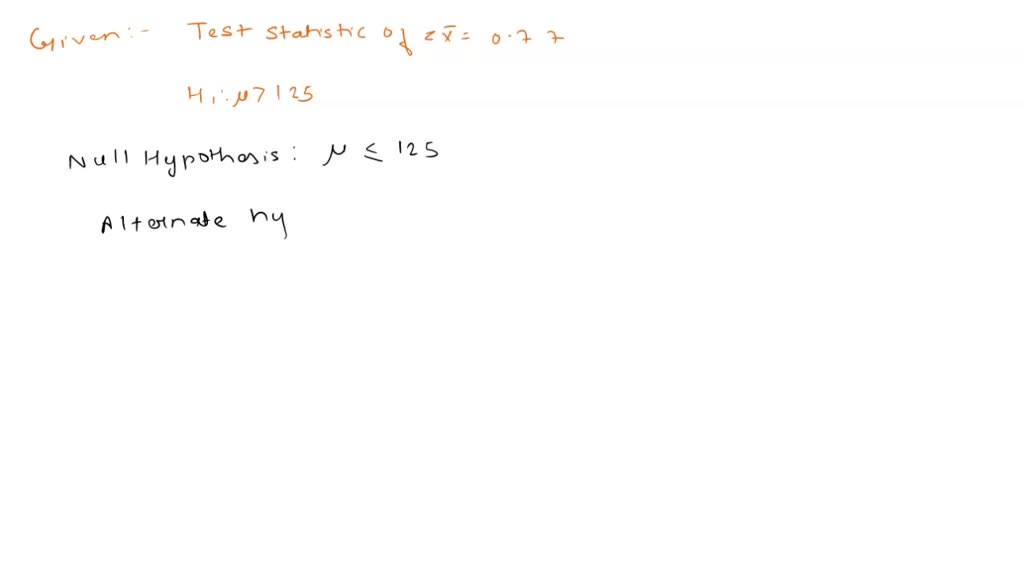 Given:- Test statistic of z x̄ = 0.77
H₁: μ > 125
Null Hypothesis: μ ≤ 125
Alternate hy